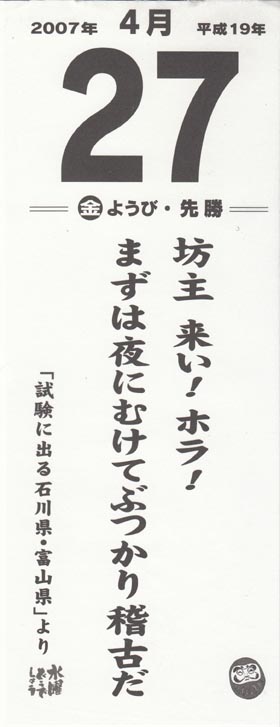 2007年 4月 平成19年
27
金ようび・先勝
坊主 来い!ホラ!
まずは夜にむけてぶつかり稽古だ
「試験に出る石川県・富山県」より
水曜どうでしょう